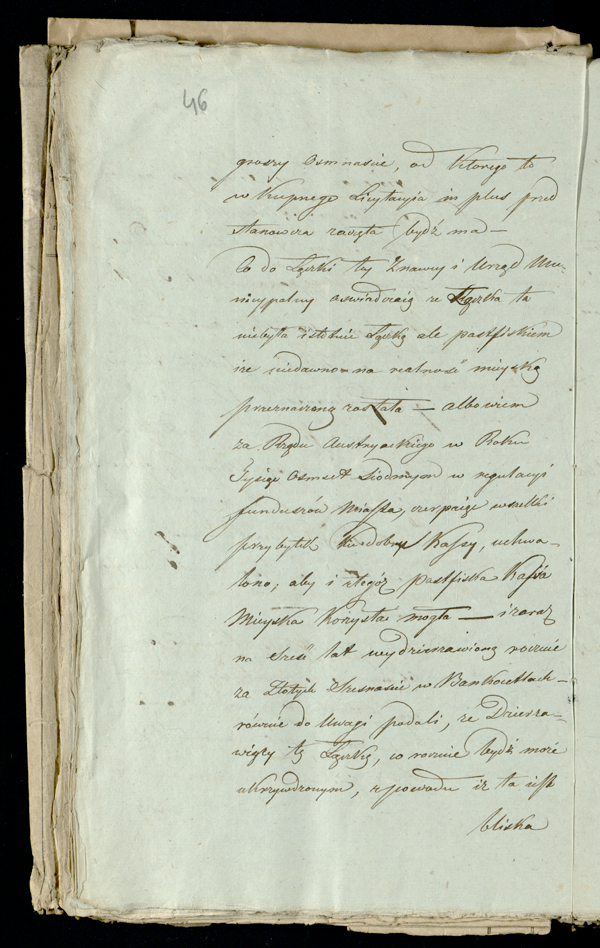 46
groszy osmnascie, od ktorego to
w kupnego Licytacyia in plus przed
stanowcza zaczęta bydź ma —
Co do Łączki tey Znawcy i Urząd Mu-
nicypalny oswiadczaią ze Łączka ta
niebyła istotnie Łączką ale pastfiskiem
ize niedawno na realność mieyską
przeznaczoną została — albowiem
za Rządu Austryackiego w Roku
Tysiąc osmset siodmym w regulacyi
funduszów Miasta, czerpaiąc wszelki
przybytek ku dobru Kassy, uchwa-
lono, aby i ztegóż pastfiska Kassa
Mieyska korzystać mogła — izaraz
na szesć lat wydzierzawioną rocznie
za Złotych szesnascie w Bankocetlach —
równie do Uwagi podali, ze Dzierza-
wiący tę Łączkę, co rocznie bydź może
ukrzywdzonym, zpowodu iz ta iest
bliska